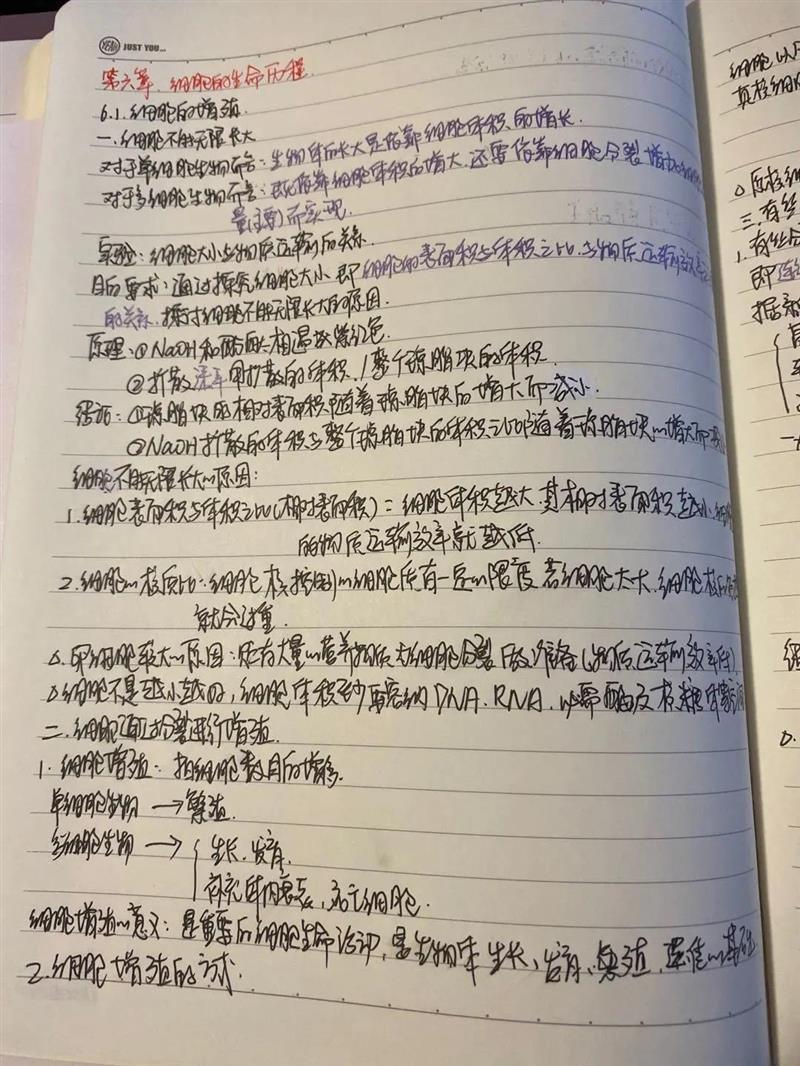 YEAH JUST YOU...
第六章. 细胞的生命历程.
6.1. 细胞的增殖.
一. 细胞不能无限长大
对于单细胞生物而言: 生物体的长大是依靠细胞体积的增长.
对于多细胞生物而言: 既依靠细胞体积的增大. 还要依靠细胞分裂增加
量(主要)而实现.
实验: 细胞大小与物质运输的关系.
目的要求: 通过探究细胞大小 即细胞的表面积与体积之比. 与物质运输效率之间
的关系. 探讨细胞不能无限长大的原因.
原理: ① NaOH和酚酞相遇呈紫红色
② 扩散深度 即扩散的体积 / 整个琼脂块的体积
结论: ①琼脂块的相对表面积随着琼脂块的增大而减小
②NaOH扩散的体积与整个琼脂块的体积之比随着琼脂块的增大而
细胞不能无限长大的原因:
1. 细胞表面积与体积之比(相对表面积): 细胞体积越大 其相对表面积越小. 细胞
的物质运输效率就越低.
2. 细胞的核质比: 细胞核控制的细胞质有一定的限度 若细胞太大. 细胞核的负担
就会过重.
△. 卵细胞较大的原因: 贮存大量的营养物质为细胞分裂做准备(物质运输的效率低)
△细胞不是越小越好, 细胞体积至少要容纳DNA. RNA. 必需酶及核糖体等
二. 细胞通过分裂进行增殖.
1. 细胞增殖: 指细胞数目的增多.
单细胞生物 → 繁殖.
多细胞生物 → { 生长. 发育.
补充体内衰老, 死亡细胞.
细胞增殖的意义: 是重要的细胞生命活动, 是生物体生长、发育、繁殖. 遗传的基础
2. 细胞增殖的方式.
细胞以
真核细胞
原核细
三. 有丝
1. 有丝分
即连